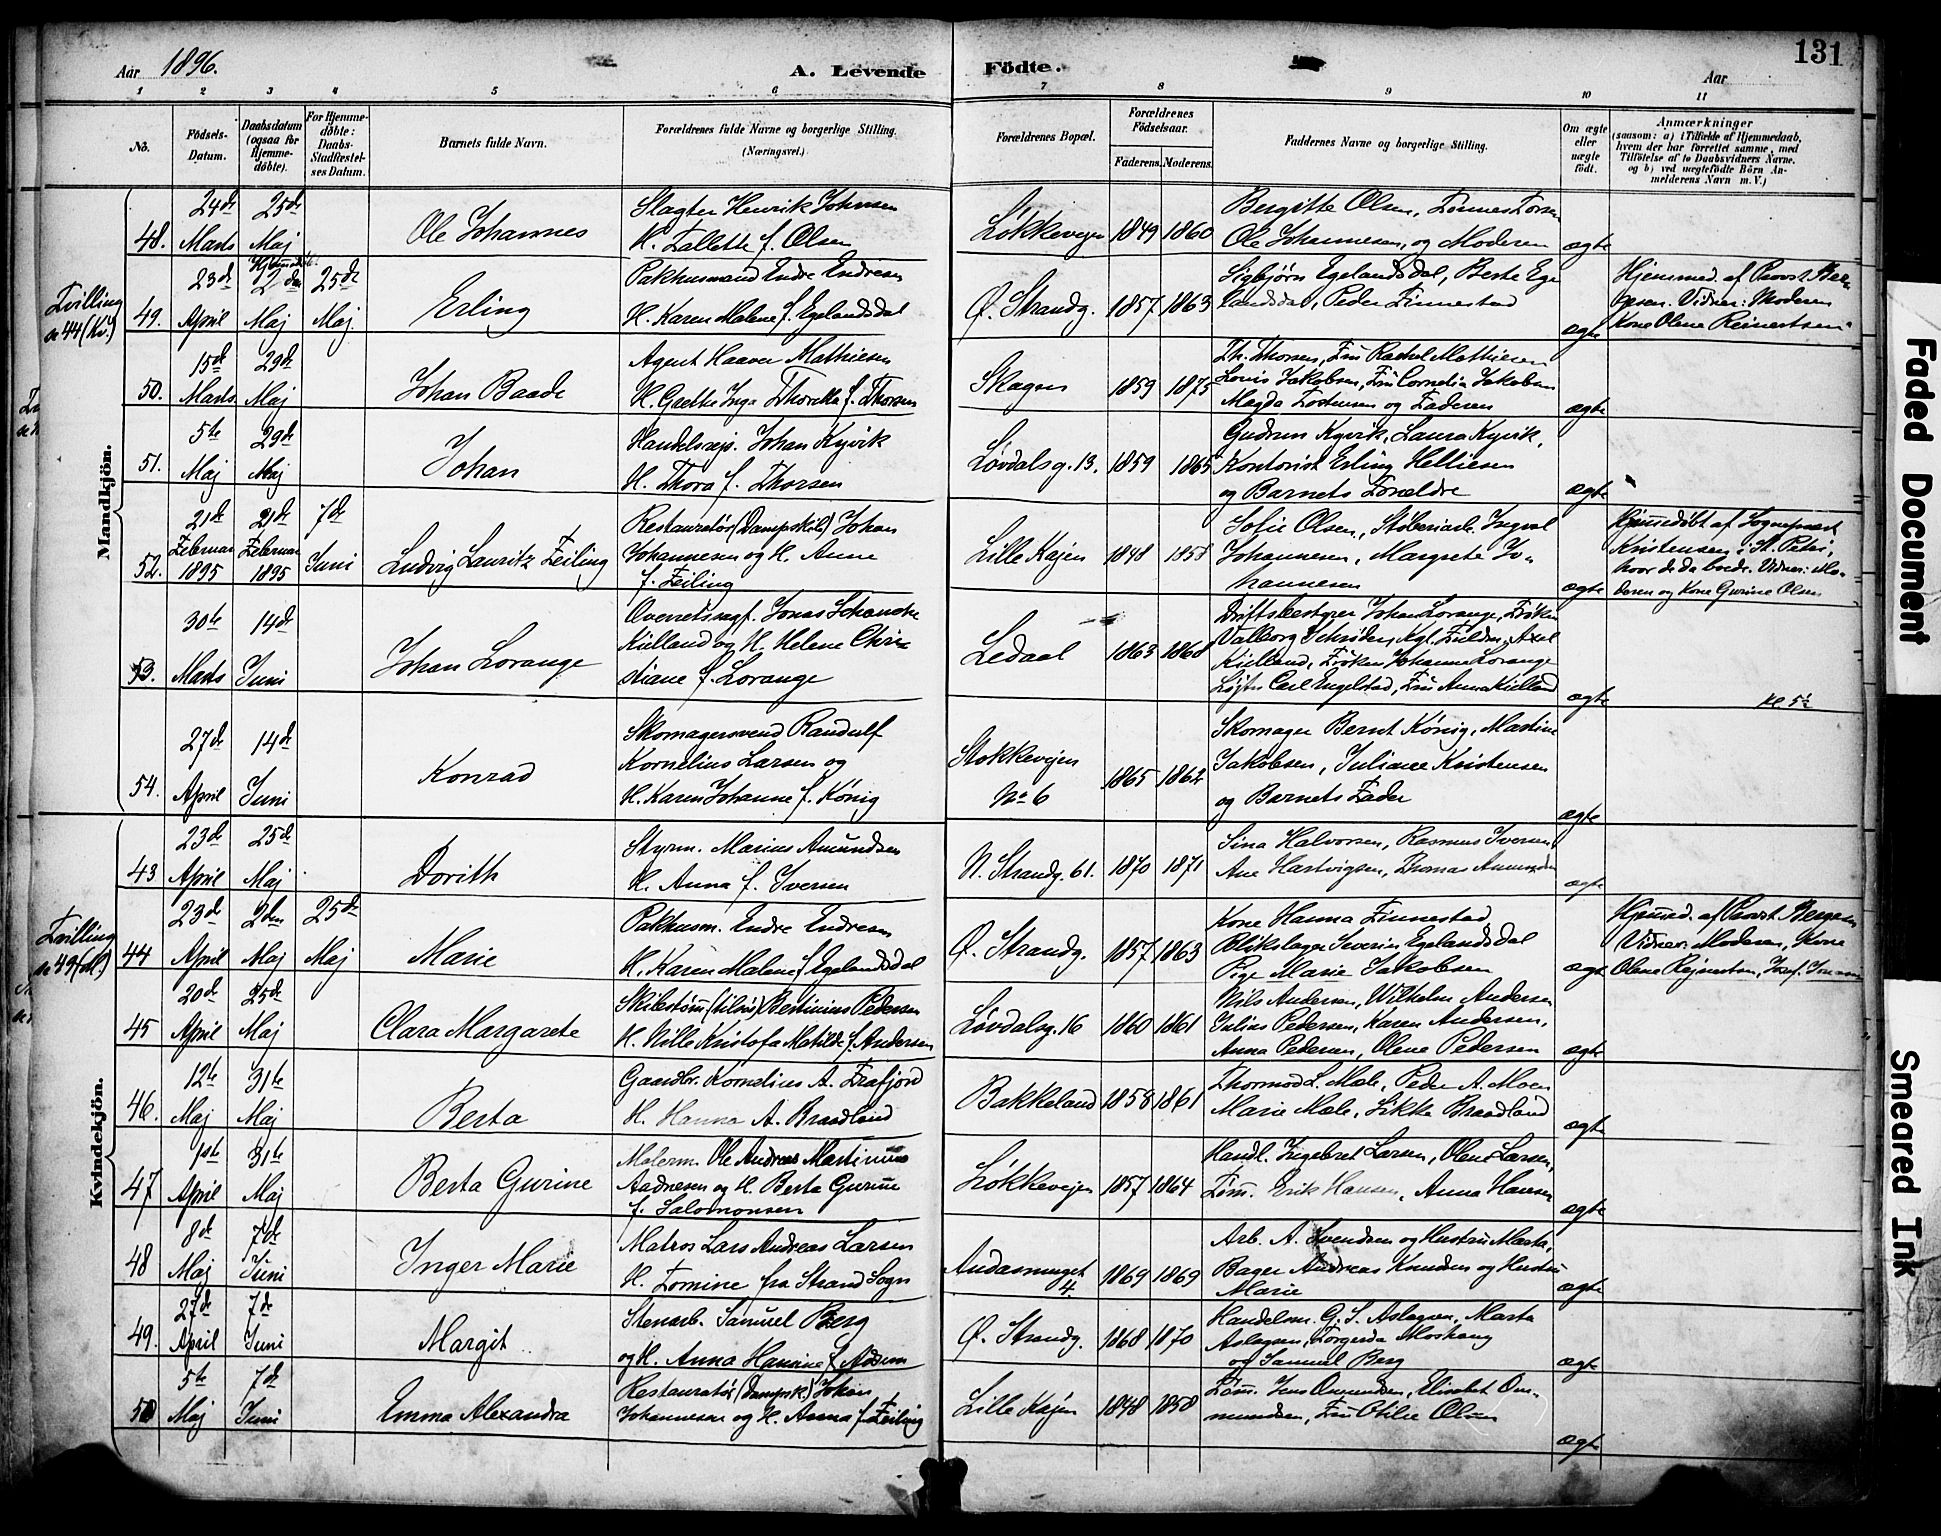 131
Aar 1896.
A. Levende Fødte.
Aar
1 2 3 4 5 6 7 8 9 10 11
No.
Fødsels-Datum.
Daabsdatum (ogsaa for Hjemme-døbte).
For Hjemme-døbte: Daabs-Stadfæstel-ses Datum.
Barnets fulde Navn.
Forældrenes fulde Navne og borgerlige Stilling.
(Næringsvei.)
Forældrenes Bopæl.
Forældrenes Fødselsaar.
Faderens. Moderens.
Faddernes Navne og borgerlige Stilling.
Om ægte eller uægte født.
Anmærkninger
(saasom: a) i Tilfælde af Hjemmedaab,
hvem der har forrettet samme, med
Tilføielse af to Daabsvidners Navne.
og b) ved uægtefødte Børn An-
melderens Navn m. V.)
Mandkjön.
48. 24de Marts 25de Maj
Ole Johannes
Slagter Henrik Johnsen
H. Tallette f. Olsen
Løkkevejen 1849 1860
Bergitte Olsen,
Ole Johannesen, og Moderen
ægte
Tvilling
se 44 (Kv.)
49. 23de April 2den Maj 25de Maj
Erling
Pakhusmand Endre Endresen
H. Karen Malene f. Egelandsdal
Ø. Strandg. 1857 1863
Sigbjørn Egelandsdal, Berte Ege
landsdal, Peder Finnestad
ægte
Hjemmed. af Provst Ber
gesen. Vidner: Moderen
Kone Olene Reinertsen
50. 15de Marts 29de Maj
Johan Baade
Agent Haaver Mathiesen
H. Gaethe Inga Thorchea f. Thorsen
Skagen 1859 1875
Th. Thorsen, Fru Rachel Mathiesen
Louis Jakobsen, Fru Cornelia Jakobsen
Magda Torstensen og Faderen
ægte
51. 5te Maj 29de Maj
Johan
Handelsrejs. Johan Kyvik
H. Thora f. Thorsen
Løvdalsg. 13. 1859 1865
Gudrun Kyvik, Laura Kyvik,
Kontorist Erling Helliesen
og Barnets Forældre
ægte
52. 21de Februar 1895 21de Februar 1895 7de Juni
Ludvig Lauritz Feiling
Restauratør (Dampskib) Johan
Johannesen og H. Anne
f. Feiling
Lille Kajen 1848 1858
Sofie Olsen, Støberiarb. Ingval
Johannesen, Margrete Jo-
hannesen
ægte
Hjemmedøbt af Sogneprest
Kristensen i St. Petri,
hvor de da boede. Vidner: Mo-
deren og Kone Gurine Olsen
53. 30te Marts 14de Juni
Johan Lorange
Overretssagf. Jonas Schanche
Kielland og H. Helene Chri
stiane f. Lorange
Ledaal 1863 1868
Driftsbestyrer Johan Lorange, Frøken
Valborg Schrøder, Kgl. Fuldm. Axel
Kielland, Frøken Johanne Lorange
Løjtn Carl Engelstad, Fru Anna Kielland
ægte
kl 5½
54. 27de April 14de Juni
Konrad
Skomagersvend Randulf
Kornelius Larsen og
H. Karen Johanne f. König
Stokkevejen
No 6
1865 1862
Skomager Bernt König, Martine
Jakobsen, Juliane Kristensen
og Barnets Fader
ægte
Kvindekjön.
43 23de April 25de Maj
Dorith
Styrm. Marius Amundsen
H. Anna f. Iversen
N. Strandg. 61. 1870 1871
Sina Halvorsen, Rasmus Iversen
Ane Hartvigsen, Thomas Amundsen
ægte
Tvilling
se 49 (M.)
44 23de April 2den Maj 25de Maj
Marie
Pakhusm. Endre Endresen
H. Karen Malene f Egelandsdal
Ø. Strandg. 1857 1863
Kone Hanna Finnestad
Blikslager Severin Egelandsdal
Pige Marie Jakobsen
ægte
Hjemmed. af Provst Bergesen
Vidner: Moderen, Kone
Olene Rejnertsen,
45 20de April 25de Maj
Clara Margarete
Skibstøm (tilsøs) Bertinius Pedersen
H. Nille Kristofa Matilde f. Andersen
Løvdalsg. 16 1860 1861
Nils Andersen, Wilhelm Andersen
Julius Pedersen, Karen Andersen,
Anna Pedersen, Olene Pedersen
ægte
46. 12te Maj 31te Maj
Berta
Gaardbr. Kornelius A. Frafjord
H. Hanna A. Braadland
Bakkeland 1858 1861
Thormod L. Mæle, Peder A. Moen
Marie Mæle, Sikke Braadland
ægte
47 1ste April 31te Maj
Berta Gurine
Malerm. Ole Andreas Martinius
Aadnesen og H. Berta Gurine
f. Salomonsen
Løkkevejen 1857 1864
Handl. Ingebret Larsen, Olene Larsen,
Tøm. Erik Hansen, Anna Hansen
ægte
48 8de Maj 7de Juni
Inger Marie
Matros Lars Andreas Larsen
H. Tomine fra Strand Sogn
Andasmuget
4
1869 1869
Arb. A. Svendsen og Hustru Marta,
Bager Andreas Knudsen og Hustru
Marie
ægte
49. 27de April 7de Juni
Margit
Stenarb. Samuel Berg
og H. Anna Hansine f.
Ø. Strandg. 1868 1870
Handelsm. G. S. Aslagsen, Marta
Aslagsen, Torgerda Moshaug
og Samuel Berg
ægte
50 5te Maj 7de Juni
Emma Alexandra
Restauratør (Dampsk.) Johan
Johannesen og H. Anna f Feiling
Lille Kajen 1848 1858
Tøm. Jens Ommundsen, Elisabet Om-
mundsen, Fru Otilie Olsen
ægte
Faded Document
Smeared Ink